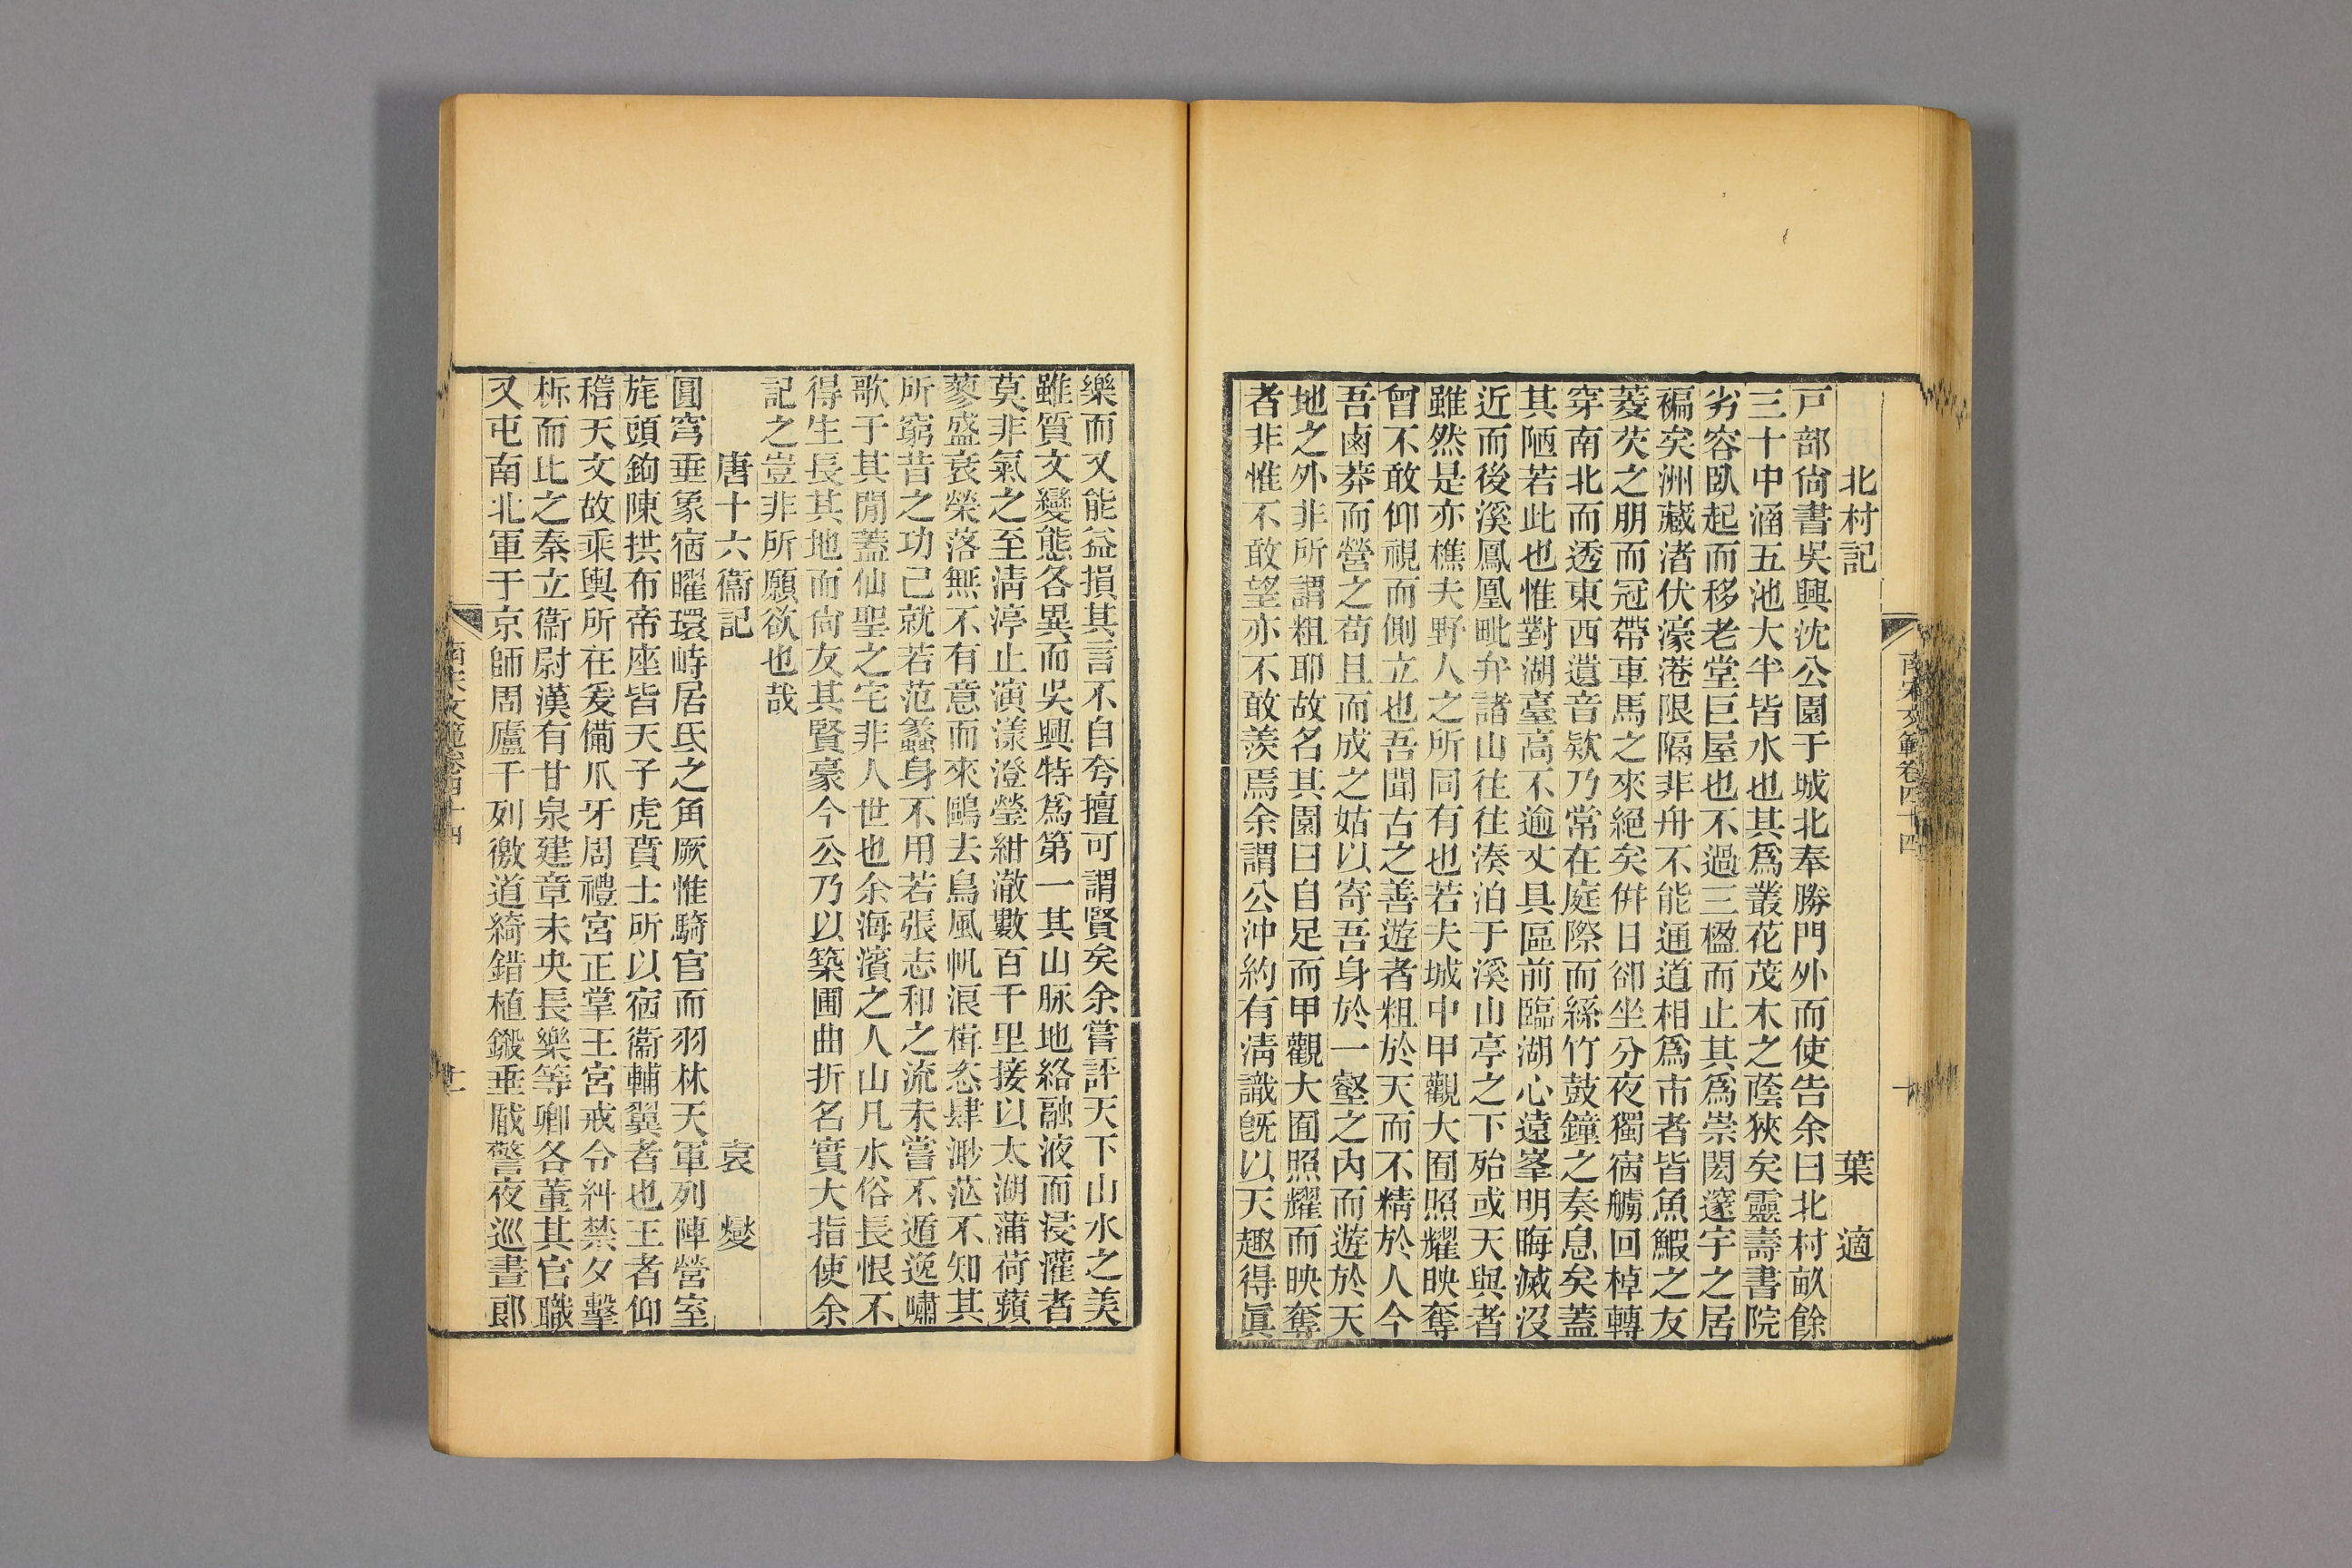 南宋文範卷四十四
北村記 葉適
戸部尙書吳興沈公園于城北奉勝門外而使告余曰北村畝餘
三十中涵五池大半皆水也其爲叢花茂木之蔭狹矣靈壽書院
劣容臥起而移老堂巨屋也不過三楹而止其爲崇閎邃宇之居
褊矣洲藏渚伏濠港限隔非舟不能通道相爲市者皆魚鰕之友
菱芡之朋而冠帶車馬之來絕矣併日卻坐分夜獨宿艣回棹轉
穿南北而透東西遺音欵乃常在庭際而絲竹鼓鐘之奏息矣蓋
其陋若此也惟對湖臺高不逾丈具區前臨湖心遠峯明晦滅沒
近而後溪鳳凰毗弁諸山往往湊泊于溪山亭之下殆或天與者
雖然是亦樵夫野人之所同有也若夫城中甲觀大囿照耀映奪
曾不敢仰視而側立也吾聞古之善遊者粗於天而不精於人今
吾鹵莽而營之苟且而成之姑以寄吾身於一壑之內而遊於天
地之外非所謂粗耶故名其園曰自足而甲觀大囿照耀而映奪
者非惟不敢望亦不敢羡焉余謂公沖約有淸識旣以天趣得眞
樂而又能益損其言不自夸擅可謂賢矣余嘗評天下山水之美
雖質文變態各異而吳興特爲第一其山脉地絡融液而浸灌者
莫非氣之至淸渟止演漾澄瑩紺澈數百千里接以太湖蒲荷蘋
蓼盛衰榮落無不有意而來鷗去鳥風帆浪楫恣肆渺茫不知其
所窮昔之功已就若范蠡身不用若張志和之流未嘗不遁逸嘯
歌于其閒蓋仙聖之宅非人世也余海濱之人山凡水俗長恨不
得生長其地而尙友其賢豪今公乃以築圃曲折名實大指使余
記之豈非所願欲也哉
唐十六衞記 袁燮
圓穹垂象宿曜環峙居氐之角厥惟騎官而羽林天軍列陣營室
旄頭鉤陳拱布帝座皆天子虎賁士所以宿衞輔翼者也王者仰
稽天文故乘輿所在爰備爪牙周禮宮正掌王宮戒令糾禁夕擊
柝而比之秦立衞尉漢有甘泉建章未央長樂等卿各董其官職
又屯南北軍于京師周廬千列徼道綺錯植鎩垂戙警夜巡晝郞
南宋文範卷四十四